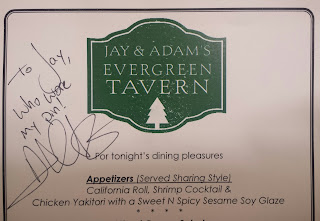 JAY & ADAM'S
EVERGREEN
TAVERN
To Jay,
Who wore
my pin!
For tonight's dining pleasures
Appetizers (Served Sharing Style)
California Roll, Shrimp Cocktail &
Chicken Yakitori with a Sweet N Spicy Sesame Soy Glaze
* * * *